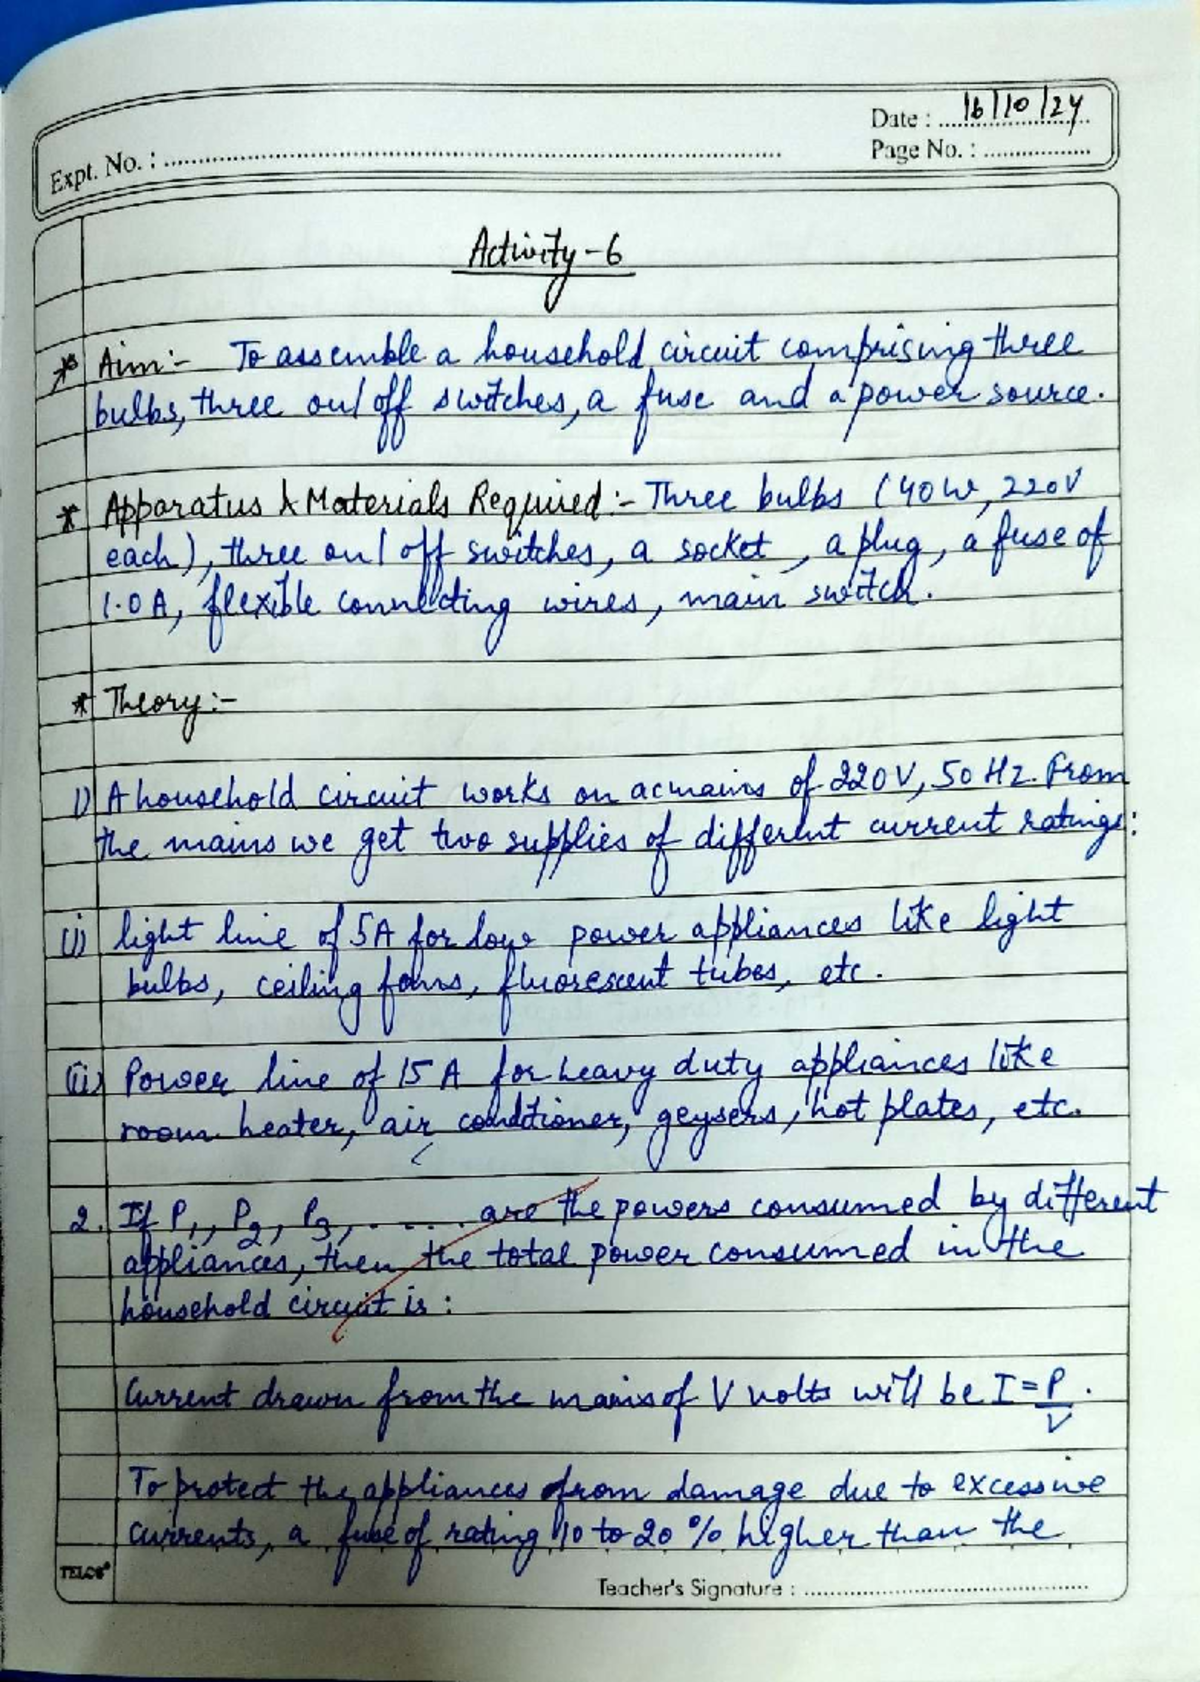 Date : 16/10/24
Expt. No. :
Page No. :
Activity-6
* Aim:- To assemble a household circuit comprising three
bulbs, three on/off switches, a fuse and a power source.
* Apparatus & Materials Required:- Three bulbs (40W, 220V
each), three on/off switches, a socket, a plug, a fuse of
1.0A, flexible connecting wires, main switch.
* Theory:-
1) A household circuit works on ac mains of 220V, 50 Hz. From
the mains we get two supplies of different current ratings:
(i) light line of 5A for low power appliances like light
bulbs, ceiling fans, fluorescent tubes, etc.
(ii) Power line of 15 A for heavy duty appliances like
room heater, air conditioner, geysers, hot plates, etc.
2. If P1, P2, P3, ...... are the powers consumed by different
appliances, then the total power consumed in the
household circuit is :
Current drawn from the mains of V volts will be I = P/V .
To protect the appliances from damage due to excessive
currents, a fuse of rating 10 to 20 % higher than the
TELCO
Teacher's Signature :